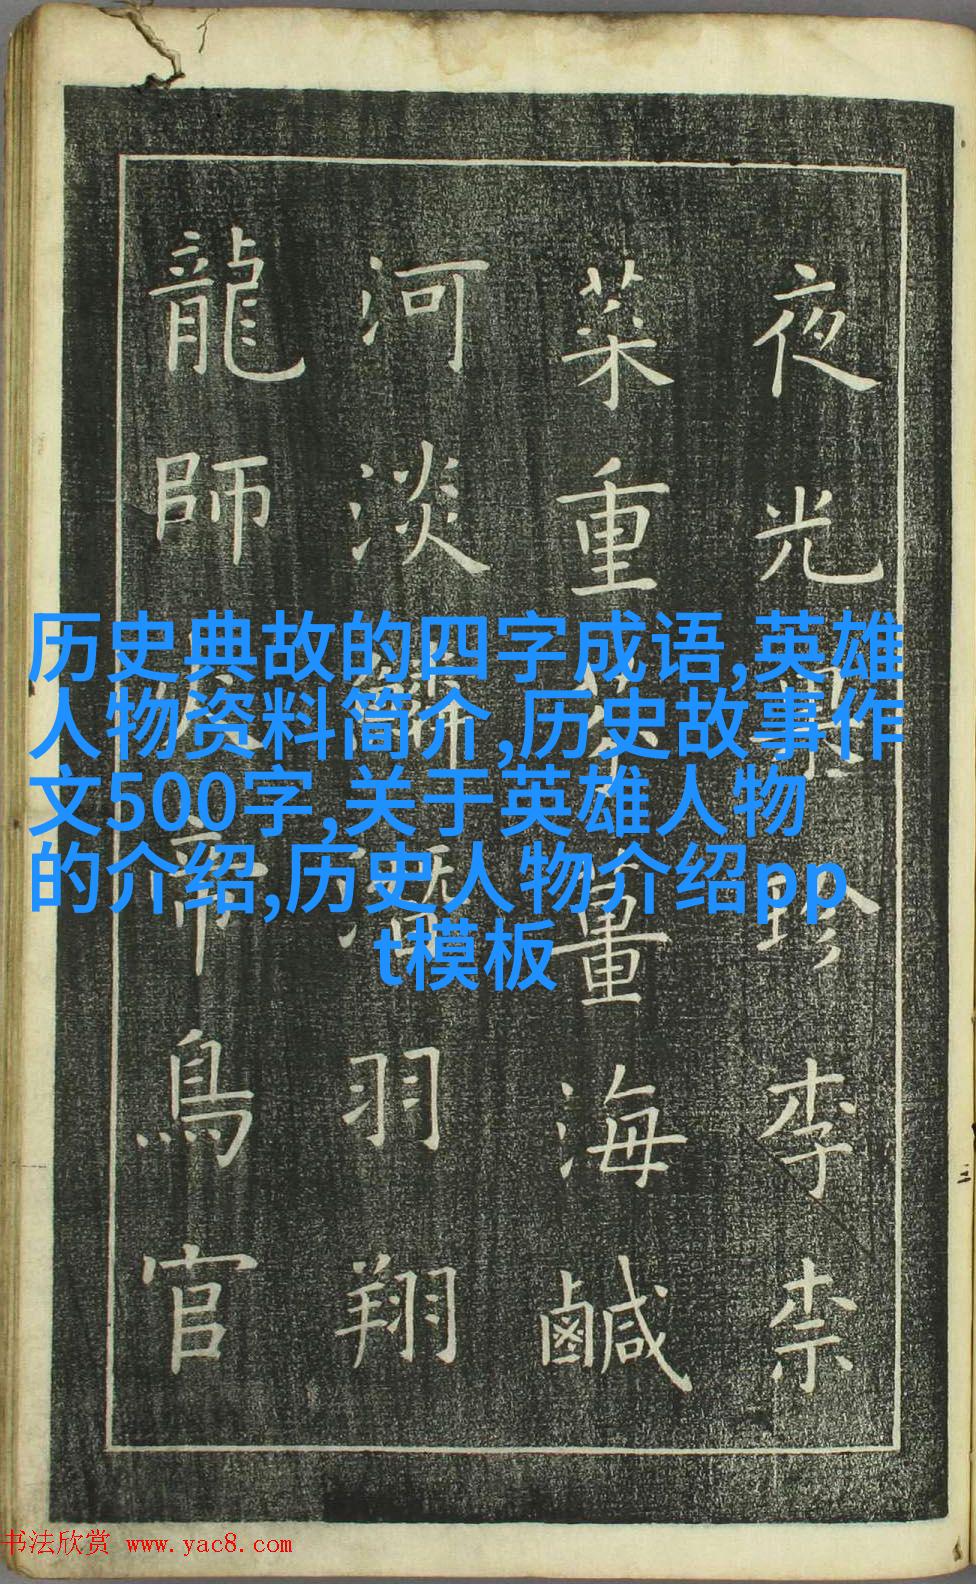 夜光珍李柰
菜重海鹹
河淡羽翔
龍師帝鳥官
历史典故的四字成语,英雄
人物资料简介,历史故事作
文500字,关于英雄人物
的介绍,历史人物介绍pp
t模板
书法欣赏 www.yac8.com